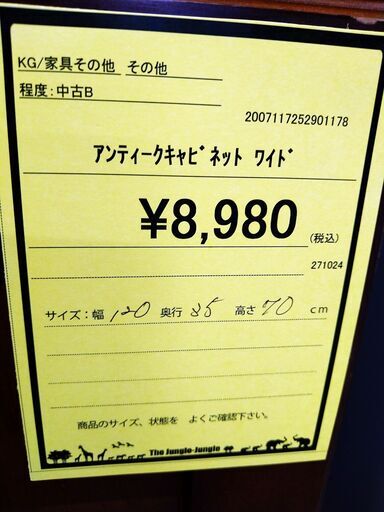 KG/家具その他 その他
程度:中古B
2007117252901178
ｱﾝﾃｨｰｸｷｬﾋﾞﾈｯﾄ ﾜｲﾄﾞ
¥8,980 (税込)
271024
サイズ:幅 120 奥行 35 高さ 70 cm
商品のサイズ、状態を よくご確認下さい。
The Jungle-Jungle